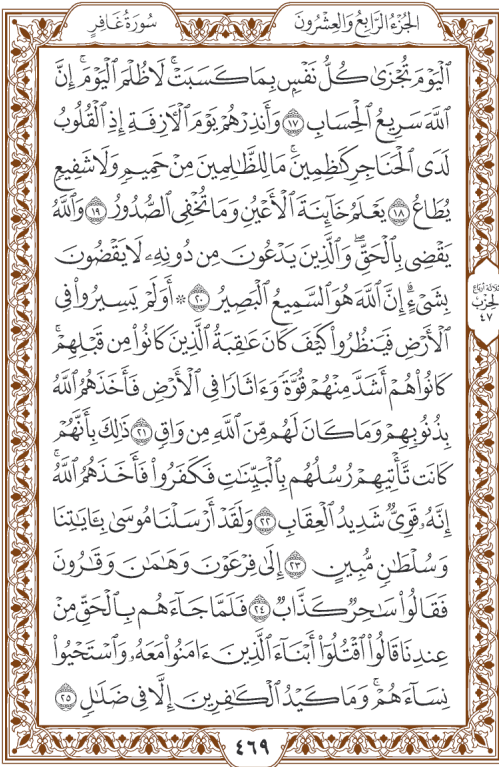 الجُزْءُ الرَّابِعُ وَالعِشْرُونَ
سُورَةُ غَافِرٍ
ٱلْيَوْمَ تُجْزَىٰ كُلُّ نَفْسٍۭ بِمَا كَسَبَتْۚ لَا ظُلْمَ ٱلْيَوْمَۚ إِنَّ
ٱللَّهَ سَرِيعُ ٱلْحِسَابِ ١٧ وَأَنذِرْهُمْ يَوْمَ ٱلْأَزِفَةِ إِذِ ٱلْقُلُوبُ
لَدَى ٱلْحَنَاجِرِ كَٰظِمِينَۚ مَا لِلظَّٰلِمِينَ مِنْ حَمِيمٍ وَلَا شَفِيعٍ
يُطَاعُ ١٨ يَعْلَمُ خَآئِنَةَ ٱلْأَعْيُنِ وَمَا تُخْفِى ٱلصُّدُورُ ١٩ وَٱللَّهُ
يَقْضِى بِٱلْحَقِّۖ وَٱلَّذِينَ يَدْعُونَ مِن دُونِهِۦ لَا يَقْضُونَ
بِشَىْءٍۗ إِنَّ ٱللَّهَ هُوَ ٱلسَّمِيعُ ٱلْبَصِيرُ ٢٠ ۞ أَوَلَمْ يَسِيرُوا۟ فِى
ٱلْأَرْضِ فَيَنظُرُوا۟ كَيْفَ كَانَ عَٰقِبَةُ ٱلَّذِينَ كَانُوا۟ مِن قَبْلِهِمْۚ
كَانُوا۟ هُمْ أَشَدَّ مِنْهُمْ قُوَّةً وَءَاثَارًا فِى ٱلْأَرْضِ فَأَخَذَهُمُ ٱللَّهُ
بِذُنُوبِهِمْ وَمَا كَانَ لَهُم مِّنَ ٱللَّهِ مِن وَاقٍ ٢١ ذَٰلِكَ بِأَنَّهُمْ
كَانَت تَّأْتِيهِمْ رُسُلُهُم بِٱلْبَيِّنَٰتِ فَكَفَرُوا۟ فَأَخَذَهُمُ ٱللَّهُۚ
إِنَّهُۥ قَوِىٌّ شَدِيدُ ٱلْعِقَابِ ٢٢ وَلَقَدْ أَرْسَلْنَا مُوسَىٰ بِـَٔايَٰتِنَا
وَسُلْطَٰنٍ مُّبِينٍ ٢٣ إِلَىٰ فِرْعَوْنَ وَهَٰمَٰنَ وَقَٰرُونَ
فَقَالُوا۟ سَٰحِرٌ كَذَّابٌ ٢٤ فَلَمَّا جَآءَهُم بِٱلْحَقِّ مِنْ
عِندِنَا قَالُوا۟ ٱقْتُلُوٓا۟ أَبْنَآءَ ٱلَّذِينَ ءَامَنُوا۟ مَعَهُۥ وَٱسْتَحْيُوا۟
نِسَآءَهُمْۚ وَمَا كَيْدُ ٱلْكَٰفِرِينَ إِلَّا فِى ضَلَٰلٍ ٢٥
ثلاثة أرباع
الحزب
٤٧
٤٦٩